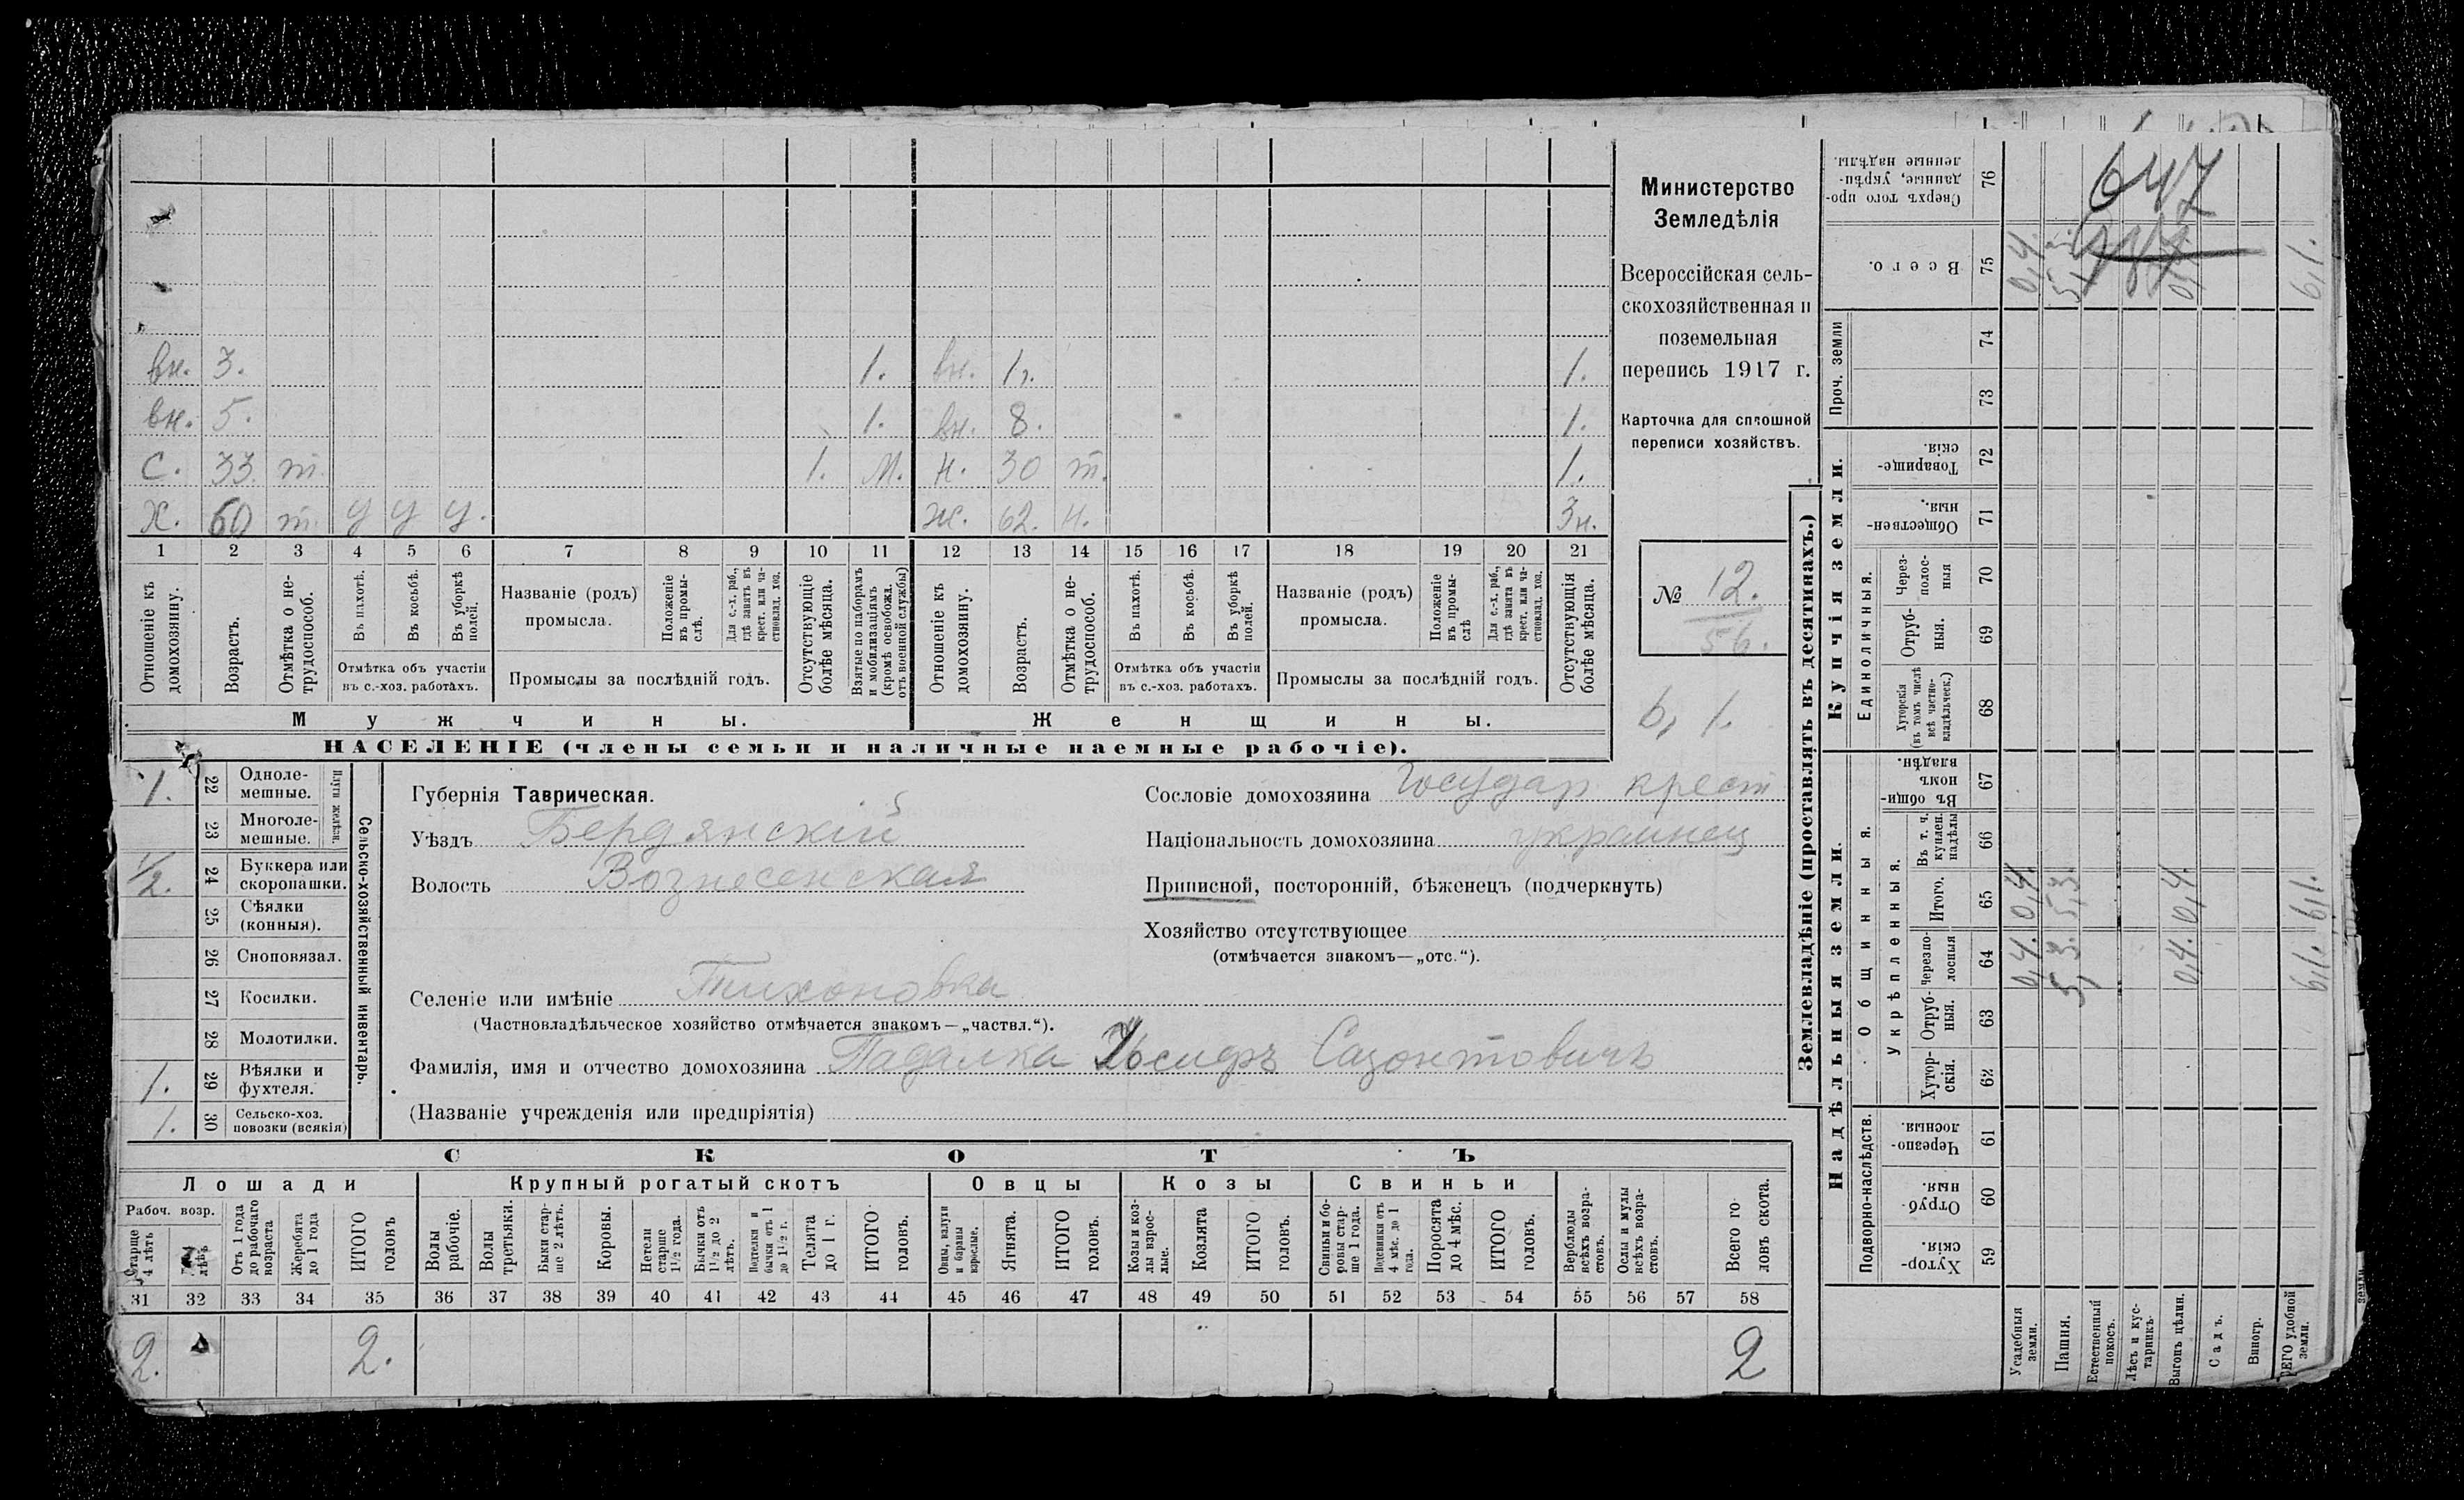 вн. 3. 1. вн. 1 г. 1.
вн. 5. 1. вн. 8. 1.
С. 33. т. 1. М. н. 30 т. 1.
Х. 60 т. у у у. Ж. 62. н. 3н.
1 2 3 4 5 6 7 8 9 10 11 12 13 14 15 16 17 18 19 20 21
Отношеніе къ домохозяину.
Возрастъ.
Отмѣтка о не-
трудоспособ.
Въ пахотѣ.
Въ косьбѣ.
Въ уборкѣ
полей.
Отмѣтка объ участіи
въ с.-хоз. работахъ.
Названіе (родъ)
промысла.
Положеніе
въ промы-
слѣ.
Для с.-х. раб.,
гдѣ занятъ въ
крест. или ча-
стновлад. хоз.
Промыслы за послѣдній годъ.
Отсутствующіе
болѣе мѣсяца.
Взятые по наборамъ
и мобилизаціямъ
(кромѣ освобожд.
отъ военной службы)
Отношеніе къ
домохозяину.
Возрастъ.
Отмѣтка о не-
трудоспособ.
Въ пахотѣ.
Въ косьбѣ.
Въ уборкѣ
полей.
Отмѣтка объ участіи
въ с.-хоз. работахъ.
Названіе (родъ)
промысла.
Положеніе
въ промы-
слѣ
Для с.-х. раб.,
гдѣ занята въ
крест. или ча-
стновлад. хоз.
Промыслы за послѣдній годъ.
Отсутствующія
болѣе мѣсяца.
Мужчины. Женщины.
НАСЕЛЕНІЕ (члены семьи и наличные наемные рабочіе).
Министерство
Земледѣлія
Всероссійская сель-
скохозяйственная и
поземельная
перепись 1917 г.
Карточка для сплошной
переписи хозяйствъ.
№ 12.
56.
6, 1.
1. 22 Одноле-
мешные.
23 Многоле-
мешные.
Плуги желѣзн.
1/2. 24 Буккера или
скоропашки.
25 Сѣялки
(конныя).
26 Сноповязал.
27 Косилки.
28 Молотилки.
1. 29 Вѣялки и
фухтеля.
1. 30 Сельско-хоз.
повозки (всякія)
Сельско-хозяйственный инвентарь.
Губернія Таврическая.
Уѣздъ Бердянскій
Волость Вознесенская
Сословіе домохозяина Государ крест
Національность домохозяина украинец
Приписной, посторонній, бѣженецъ (подчеркнуть)
Хозяйство отсутствующее
(отмѣчается знакомъ—„отс.“).
Селеніе или имѣніе Тихоновка
(Частновладѣльческое хозяйство отмѣчается знакомъ—„частвл.“).
Фамилія, имя и отчество домохозяина Падалка Іосифъ Сазонтовичъ
(Названіе учрежденія или предпріятія)
СКОТЪ
Лошади Крупный рогатый скотъ Овцы Козы Свиньи
Рабоч. возр.
Старше
4 лѣтъ
лѣтъ
Отъ 1 года
до рабочаго
возраста
Жеребята
до 1 года
ИТОГО
головъ
Волы
рабочіе.
Волы
третьяки.
Быки стар-
ше 2 лѣтъ.
Коровы.
Нетели
старше
1½ года.
Бычки отъ
1½ до 2
лѣтъ.
Подтелки и
бычки отъ 1
до 1½ г.
Телята
до 1 г.
ИТОГО
головъ.
Овцы, валухи
и бараны
взрослые.
Ягнята.
ИТОГО
головъ.
Козы и коз-
лы взрос-
лые.
Козлята
ИТОГО
головъ.
Свиньи и бо-
ровы стар-
ше 1 года.
Подсвинки отъ
4 мѣс. до 1
года.
Поросята
до 4 мѣс.
ИТОГО
головъ.
Верблюды
всѣхъ возра-
стовъ.
Ослы и мулы
всѣхъ возра-
стовъ.
Всего го-
ловъ скота.
31 32 33 34 35 36 37 38 39 40 41 42 43 44 45 46 47 48 49 50 51 52 53 54 55 56 57 58
2. 2. 2
Землевладѣніе (проставлять въ десятинахъ.)
Надѣльныя земли. Купчія земли.
Подворно-наслѣдств.
Общинныя.
Укрѣпленныя.
Единоличныя.
Проч. земли
Сверхъ того про-
данные, укрѣп-
ленные надѣлы.
76
647
Всего. 75 0,4. 5,3. 0,4. 6,1.
74
73
Товарище-
скія. 72
Обществен-
ныя. 71
Через-
полос-
ныя 70
Отруб-
ныя. 69
Хуторскія
(въ томъ числѣ
всѣ частно-
владѣльческ.) 68
Въ общин-
номъ
владѣн. 67
Въ т. ч.
куплен.
надѣлы 66
Итого. 65 0,4 5,3. 0,4. 6,1.
Черезпо-
лосныя 64 0,4. 5,3. 0,4. 6,1.
Отруб-
ныя. 63
Хутор-
скія. 62
Черезпо-
лосныя. 61
Отруб-
ныя. 60
Хутор-
скія. 59
Усадебныя
земли.
Пашня.
Естественный
покосъ.
Лѣсъ и кус-
тарникъ.
Выгонъ цѣлин.
Садъ.
Виногр.
ВСЕГО удобной
земли.